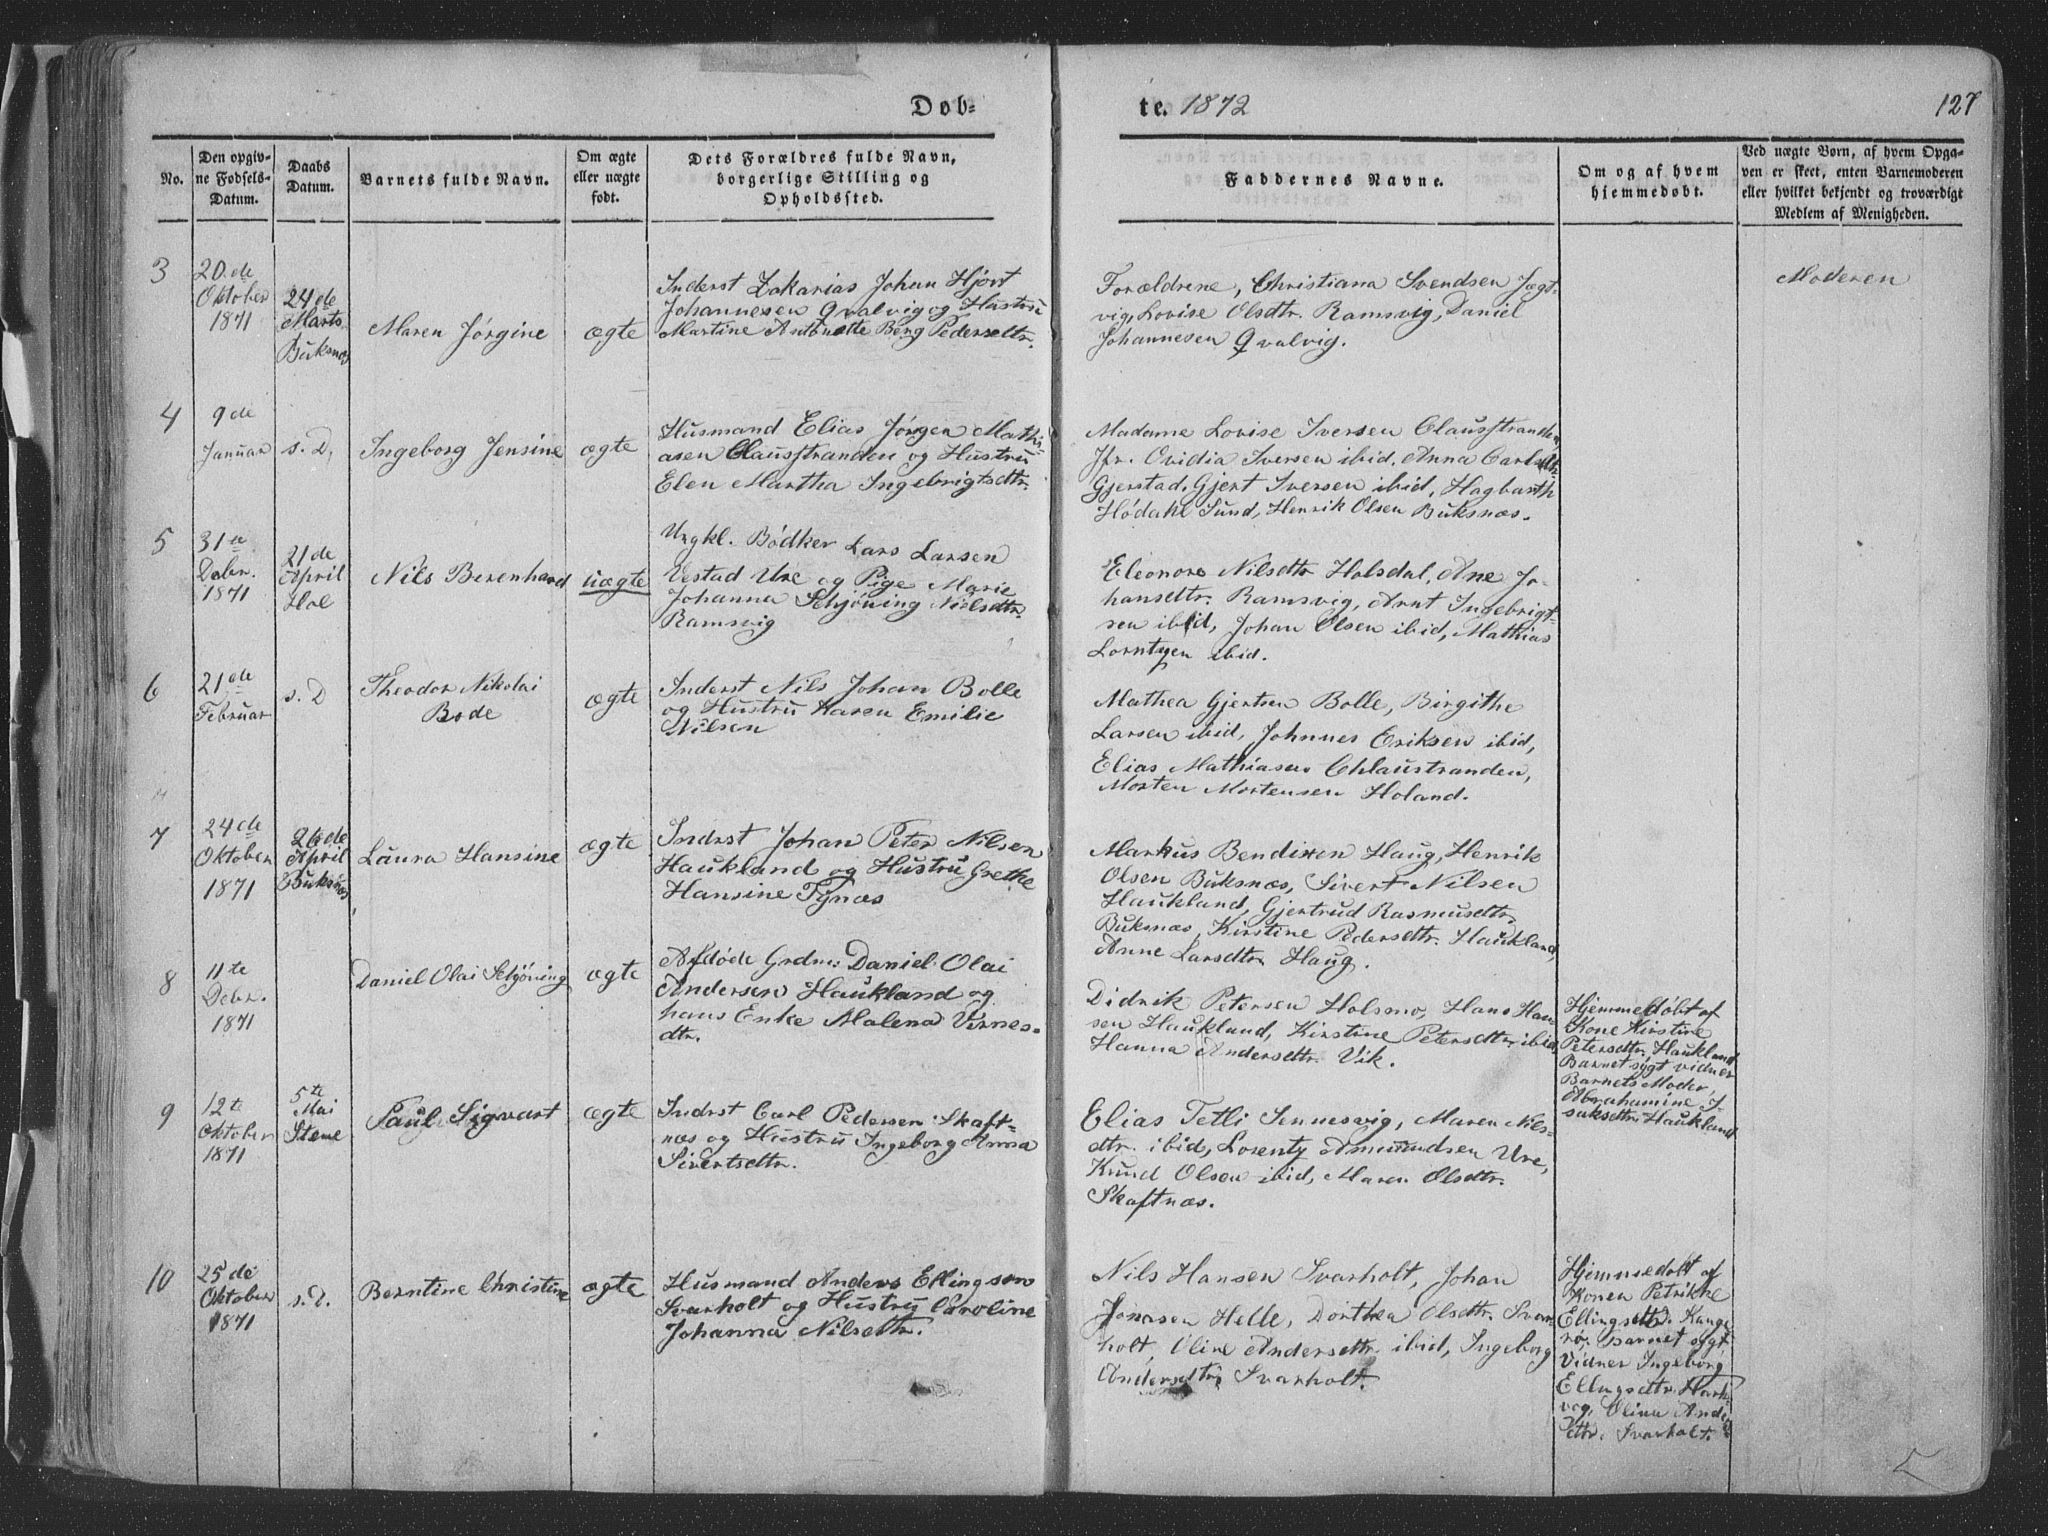 Døb-
te. 1872
127
No.
Den opgiv-
ne Fødsels-
Datum.
Daabs
Datum.
Barnets fulde Navn.
Om ægte
eller uægte
født.
Dets Forældres fulde Navn,
borgerlige Stilling og
Opholdssted.
Faddernes Navne.
Om og af hvem
hjemmedøbt.
Ved uægte Børn, af hvem Opga-
ven er skeet, enten Barnemoderen
eller hvilket bekjendt og troværdigt
Medlem af Menigheden.
3
20de
Oktober
1871
24de
Marts
Buksnæs
Maren Jørgine
ægte
Inderst Zakarias Johan Hjort
Johannesen Qvalvig og Hustru
Martine Antonette Berg Pedersdtr.
Forældrene, Christiana Svendsen Jægt-
vig, Lovise Olsdtr. Ramsvig, Daniel
Johannesen Qvalvig.
Moderen
4
9de
Januar
s. D.
Ingeborg Jensine
ægte
Husmand Elias Jørgen Mathi-
asen Clausstranden og Hustru
Elen Martha Ingebrigtsdtr.
Madame Lovise Iversen Clausstranden
Jfr. Ovidia Iversen ibid, Anna Carlsdtr.
Gjerstad, Gjert Iversen ibid, Hagbarth
Hødahl Sund, Henrik Olsen Buksnæs.
5
31te
Debr.
1871
21de
April
Hol
Nils Berenhard
uægte
Ungkl. Bødker Lars Larsen
Vestad Ure og Pige Marie
Johanna Schjøning Nielsdtr.
Ramsvig
Eleonore Nilsdtr Holsdal, Ane Jo-
hansdtr. Ramsvig, Arnt Ingebrigt-
sen ibid, Johan Olsen ibid, Mathias
Lorntzen ibid.
6
21de
Februar
s. D
Theodor Nikolai
Bode
ægte
Inderst Nils Johan Bolle
og Hustru Karen Emilie
Nilsen
Mathea Gjertsen Bolle, Birgithe
Larsen ibid, Johnnes Eriksen ibid,
Elias Mathiasen Chlaustranden,
Morten Mortensen Holand.
7
24de
Oktober
1871
26de
April
Buksnæs
Laura Hansine
ægte
Indrst Johan Peter Nilsen
Haukland og Hustru Grethe
Hansine Tynæs
Markus Bendixen Haug, Henrik
Olsen Buksnæs, Sivert Nilsen
Haukland, Gjertrud Rasmusdtr.
Buksnæs, Kirstine Pedersdtr. Haukland
Anne Larsdtr Haug.
8
11te
Debr.
1871
Daniel Olai Schjøning
ægte
Afdøde Grdm: Daniel Olai
Andersen Haukland og
hans Enke Malena Vernes-
dtr.
Didrik Petersen Holsmo, Hans Han-
sen Haukland, Kirstine Petersdtr. ibid
Hanna Andersdtr. Vik.
Hjemmedøbt af
Kone Kirstine
Petersdtr, Haukland
Barnet sygt vidner
Barnets Moder,
Abrahamine I-
saksdtr. Haukland
9
12te
Oktober
1871
5te
Mai
Stene
Paul Sigvart
ægte
Indrst Carl Pedersen Skaft-
næs og Hustru Ingeborg Anna
Sivertsdtr.
Elias Tetli Sennesvig, Maren Nils-
dtr. ibid, Lorentz Amundsen Ure,
Knud Olsen ibid, Maren Olsdtr.
Skaftnæs.
10
25de
Oktober
1871
s. D.
Berntine Christine
ægte
Husmand Anders Ellingsen
Svarholt og Hustru Caroline
Johanna Nilsdtr.
Nils Hansen Svarholt, Johan
Jonasen Helle, Dorthea Olsdtr. Svar-
holt, Oline Andersdtr. ibid, Ingeborg
Andersdtr. Svarholt.
Hjemmedøbt af
Konen Petrikke
Ellingsdtr. Kange
rø. Barnet sygt
Vidner Ingeborg
Ellingsdtr.
Olina Anders
dtr. Svarholt.